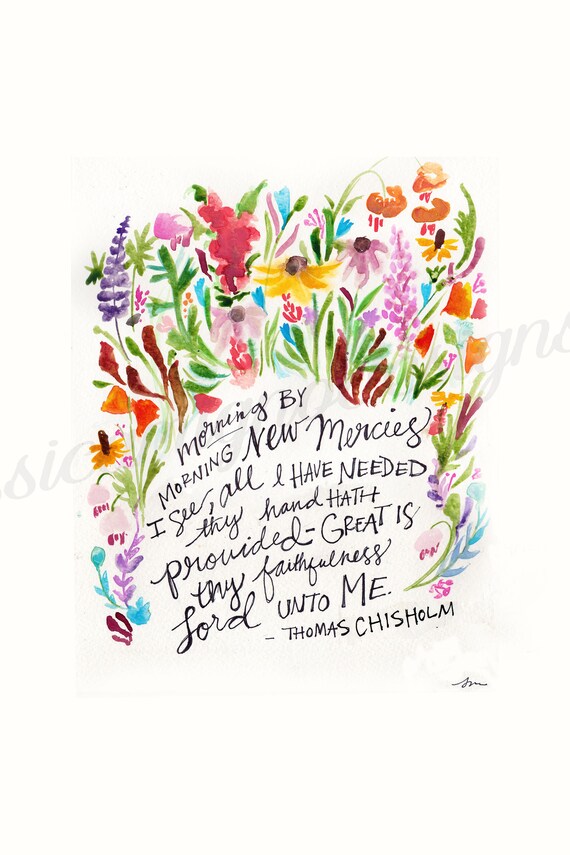 morning BY
MORNING NEW Mercies
I see, all I HAVE NEEDED
thy hand HATH
provided - GREAT IS
thy faithfulness
Lord UNTO ME.
- THOMAS CHISHOLM